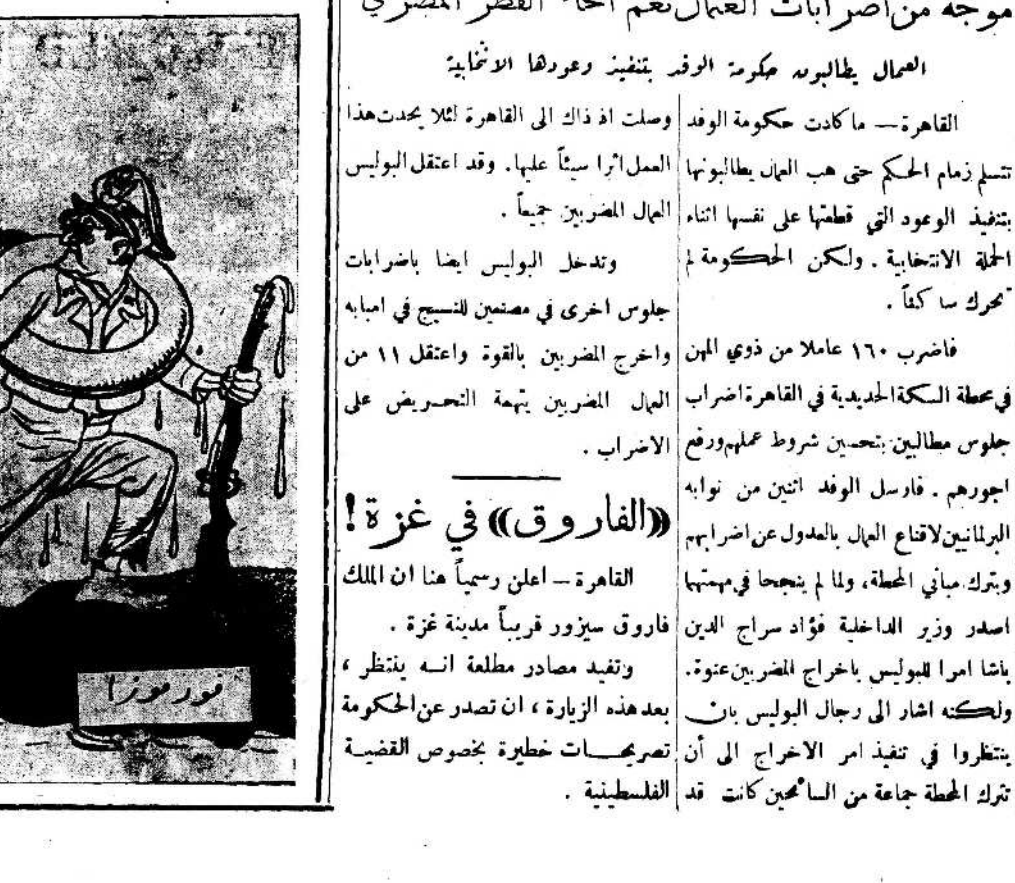 موجة من اضرابات العمال تعم انحاء القطر المصري
العمال يطالبون حكومة الوفد بتنفيذ وعودها الانتخابية
القاهرة — ما كادت حكومة الوفد
تتسلم زمام الحكم حتى هب العمال يطالبونها
بتنفيذ الوعود التي قطعتها على نفسها اثناء
الحملة الانتخابية . ولكن الحكومة لم
تحرك ساكناً .
فاضرب ١٦٠ عاملا من ذوي المهن
في محطة السكة الحديدية في القاهرة اضراب
جلوس مطالبين بتحسين شروط عملهم ورفع
اجورهم . فارسل الوفد اثنين من نوابه
البرلمانيين لاقناع العمال بالعدول عن اضرابهم
وبترك مباني المحطة، ولما لم ينجحا في مهمتهما
اصدر وزير الداخلية فؤاد سراج الدين
باشا امرا للبوليس باخراج المضربين عنوة.
ولكنه اشار الى رجال البوليس بان
ينتظروا في تنفيذ امر الاخراج الى أن
تترك المحطة جماعة من السائحين كانت قد
وصلت اذ ذاك الى القاهرة لئلا يحدث هذا
العمل اثرا سيئاً عليها. وقد اعتقل البوليس
العمال المضربين جميعاً .
وتدخل البوليس ايضا باضرابات
جلوس اخرى في مصنعين للنسيج في امبابه
واخرج المضربين بالقوة واعتقل ١١ من
العمال المضربين بتهمة التحريض على
الاضراب .
«الفاروق» في غزة!
القاهرة — اعلن رسمياً هنا ان الملك
فاروق سيزور قريباً مدينة غزة .
وتفيد مصادر مطلعة انه ينتظر ،
بعد هذه الزيارة ، ان تصدر عن الحكومة
تصريحات خطيرة بخصوص القضية
الفلسطينية .
فورموزا